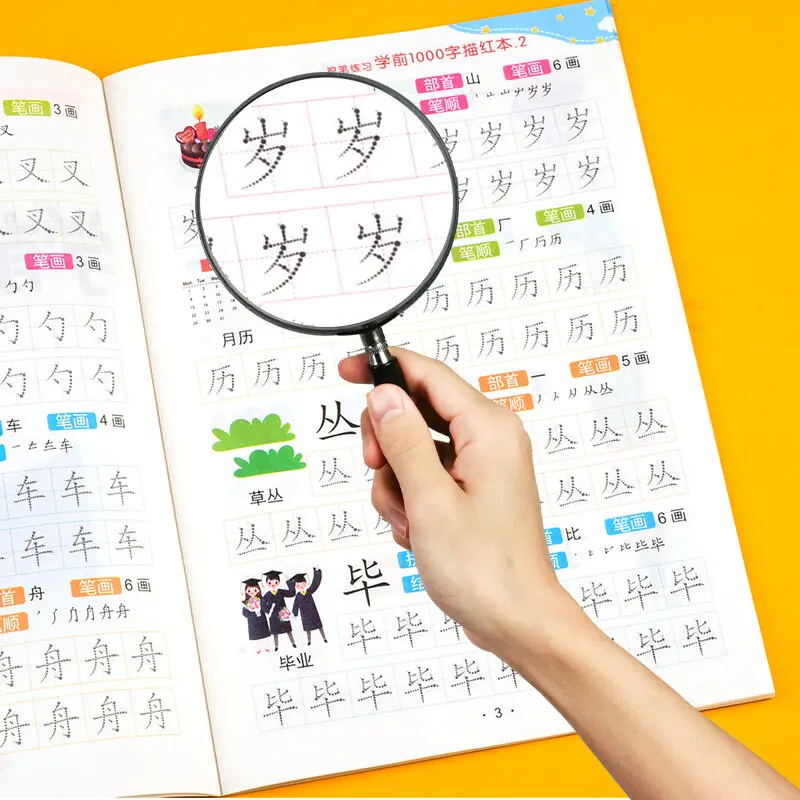 笔画 3画
叉
叉 叉
叉 叉
笔画 3画
勺勺
勺 勺
勺 勺 勺
车 笔画 4画
车
车 车 车
车 车 车
舟
首 舟 笔画 6画
笔顺 舟舟
舟 舟 舟
舟 舟 舟 舟
铅笔练习 学前1000字描红本.2
部首 山 笔画 6画
笔顺 岁岁
岁 岁 岁 岁
岁 岁 岁 岁
岁 岁
岁 岁
部首 厂 笔画 4画
笔顺 一厂历历
月历
历 历 历 历 历
历 历 历 历 历 历 历 历
丛
部首 一 笔画 5画
笔顺 丿人从丛
草丛
丛 丛 丛 丛
丛 丛 丛 丛 丛 丛
毕
首 比 笔画 6画
毕业
毕 毕 毕 毕 毕 毕
毕 毕 毕 毕 毕 毕 毕 毕
·3·